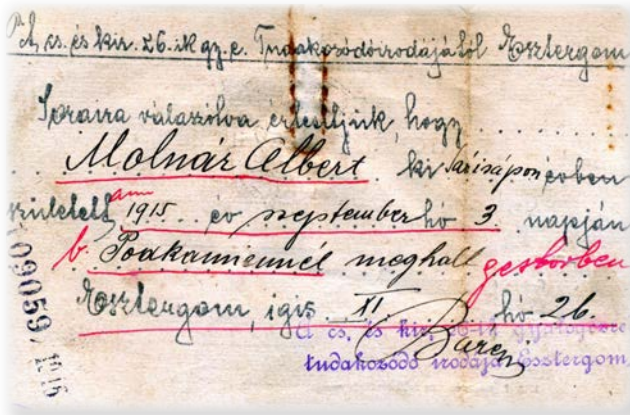 A cs. és kir. 26.ik gy.e. Tudakozódóirodájától Esztergom
Soraira válaszolva értesítjük, hogy . . . . . .
. . Molnár Albert . ki Sárisápon . évben
született, am 1915 . . év szeptember hó 3 napján
b. Podkamiennél meghalt gestorben
Esztergom, 1915 XI. hó 26.
A cs. és kir. 26-ik gyalogezre
tudakozódó irodája Esztergom,
09059/1916